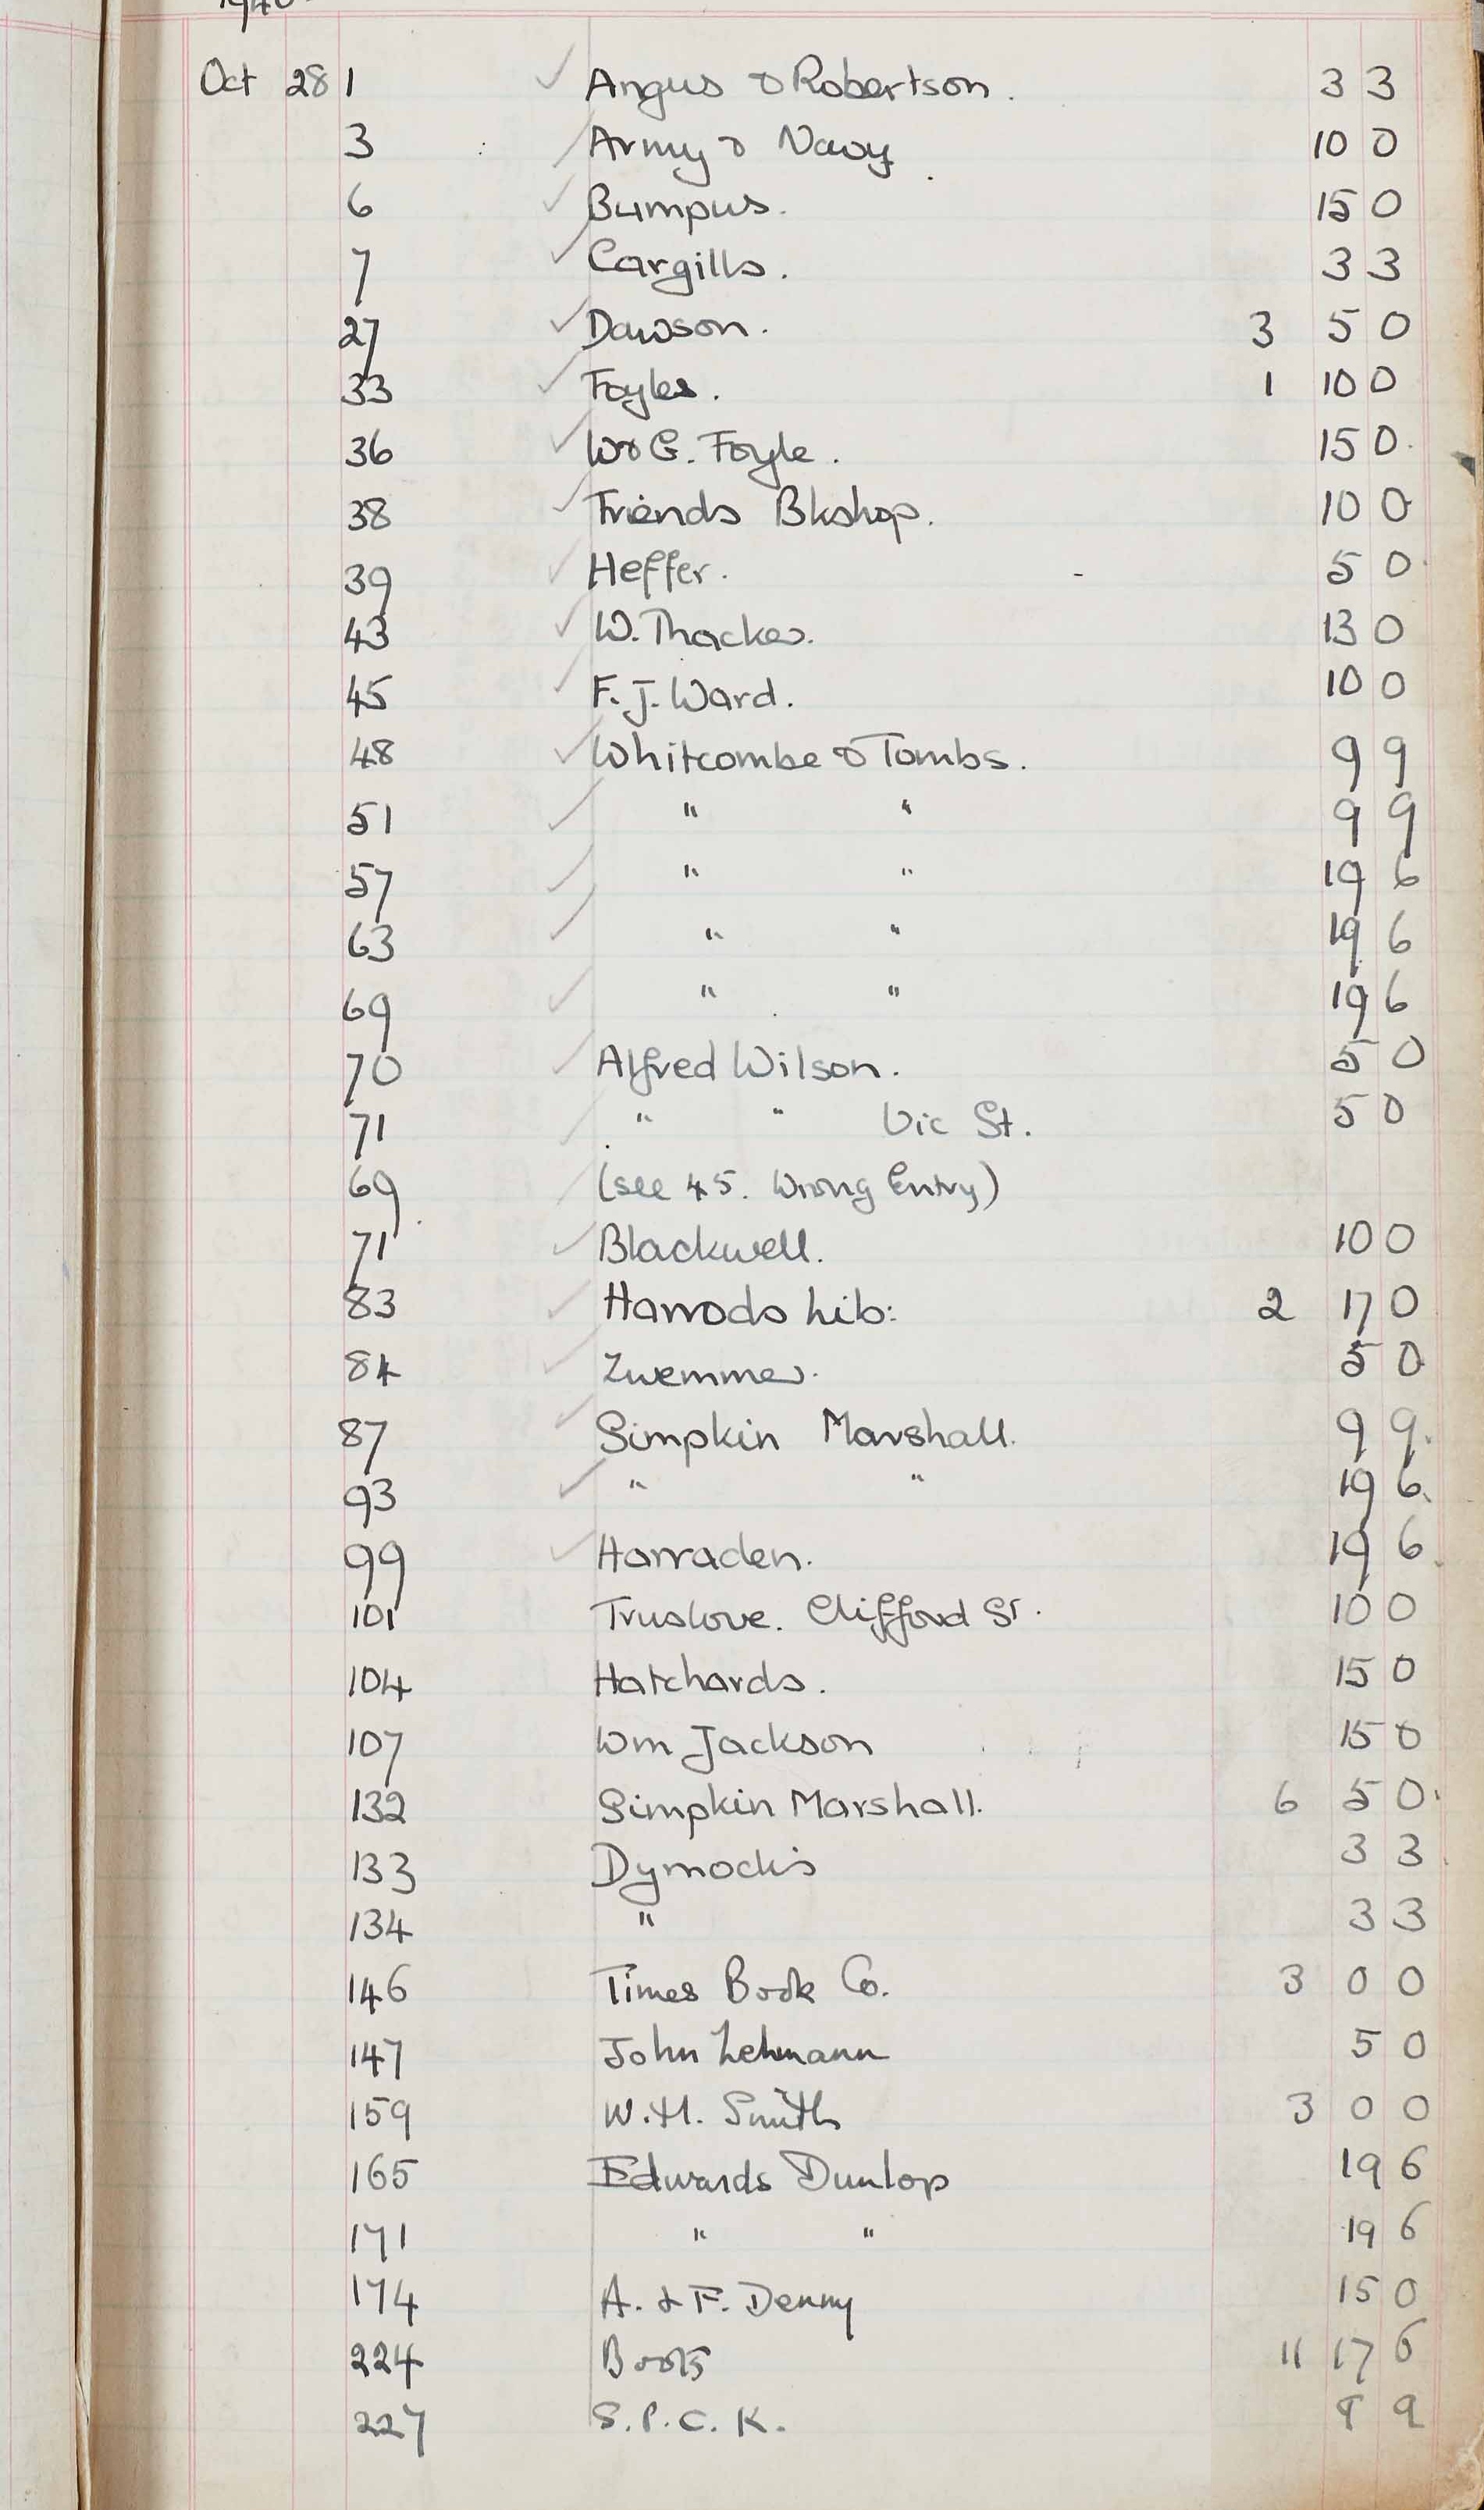 1940
Oct 28 1 Angus & Robertson. 3 3
3 Army & Navy 10 0
6 Bumpus. 15 0
7 Cargills. 3 3
27 Dawson. 3 5 0
33 Foyles. 1 10 0
36 W & G. Foyle. 15 0
38 Friends Bkshop. 10 0
39 Heffer. 5 0
43 W. Thacker. 13 0
45 F. J. Ward. 10 0
48 Whitcombe & Tombs. 9 9
51 " " 9 9
57 " " 19 6
63 " " 19 6
69 " " 19 6
70 Alfred Wilson. 5 0
71 " " Vic St. 5 0
69 (see 45. Wrong Entry)
71 Blackwell. 10 0
83 Harrods Lib: 2 17 0
84 Zwemmer. 5 0
87 Simpkin Marshall. 9 9
93 " " 19 6
99 Harraden. 19 6
101 Truslove. Clifford St. 10 0
104 Hatchards. 15 0
107 Wm Jackson 15 0
132 Simpkin Marshall. 6 5 0
133 Dymock's 3 3
134 " 3 3
146 Times Book Co. 3 0 0
147 John Lehmann 5 0
159 W. H. Smith 3 0 0
165 Edwards Dunlop 19 6
171 " " 19 6
174 A. & F. Denny 15 0
224 Boots 11 17 6
227 S. P. C. K. 9 9